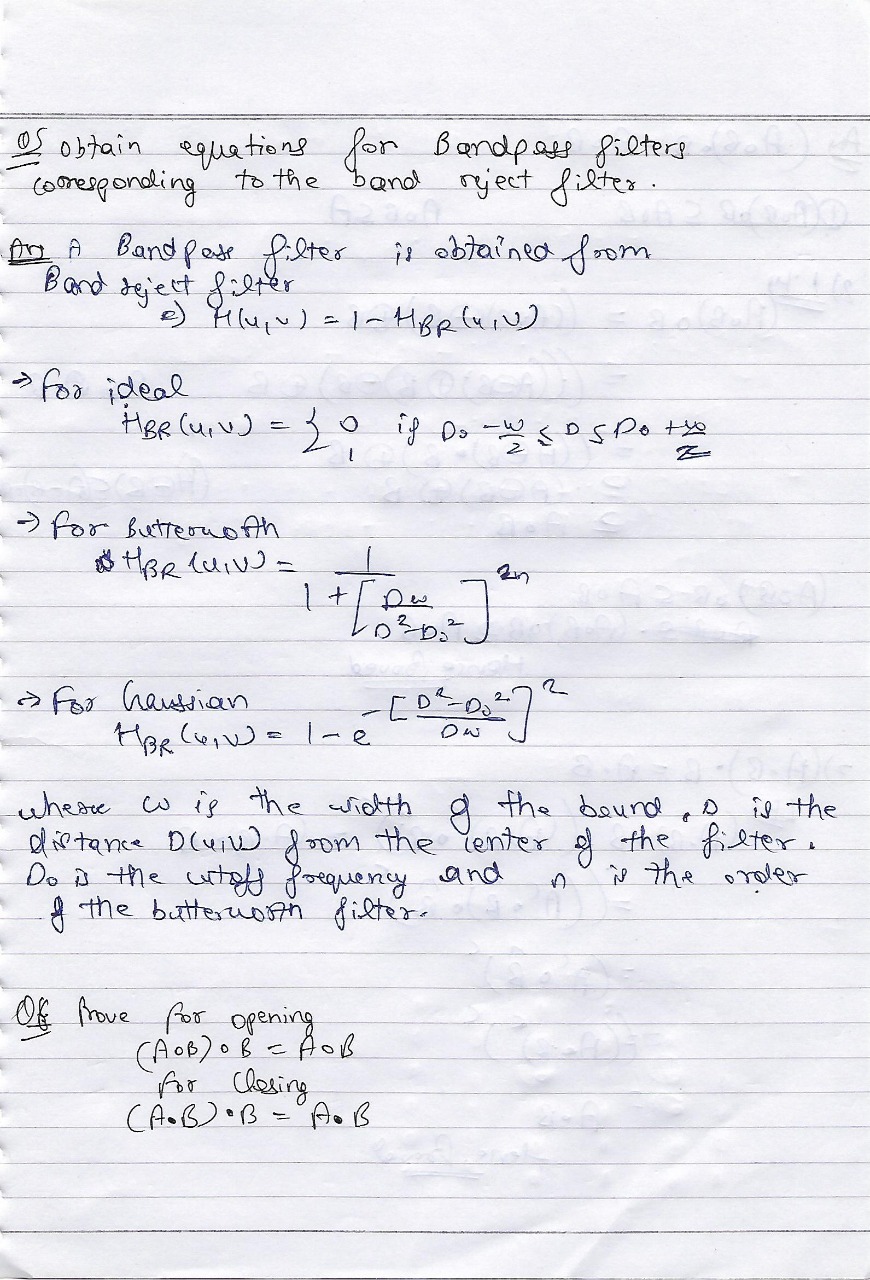 Q5 obtain equations for Bandpass filters
corresponding to the band reject filter.
Ans A Bandpass filter is obtained from
Band reject filter
H(u,v) = 1 - HBR(u,v)
→ for ideal
HBR(u,v) = { 0 if D0 - w/2 ≤ D ≤ D0 + w/2
1
→ for Butterworth
HBR(u,v) = 1 / (1 + [Dw / (D² - D0²)]^2n)
→ For Gaussian
HBR(u,v) = 1 - e^-[(D² - D0²) / Dw]²
where w is the width of the bound, D is the
distance D(u,v) from the center of the filter.
D0 is the cutoff frequency and n is the order
of the butterworth filter.
Q6 Prove for opening
(A∘B)∘B = A∘B
for Closing
(A•B)•B = A•B